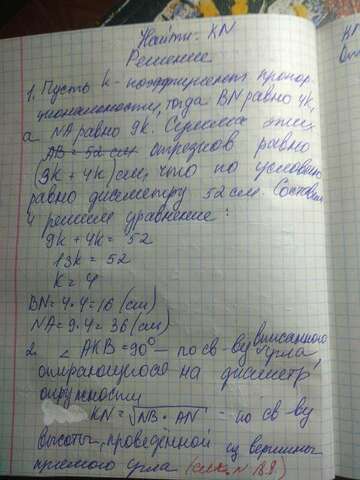 Найти: KN
Решение
1. Пусть k - коэффициент пропор
циональности, тогда BN равно 4k,
а NA равно 9k. Сумма этих
AB = 52 см отрезков равно
(9k + 4k) см, что по условию
равно диаметру 52 см. Составим
и решим уравнение:
9k + 4k = 52
13k = 52
k = 4
BN = 4 · 4 = 16 (см)
NA = 9 · 4 = 36 (см)
2. ∠ AKB = 90° - по св-ву вписанного угла,
опирающегося на диаметр
окружности
KN = √NB · AN - по св-ву
высоты, проведённой из вершины
прямого угла